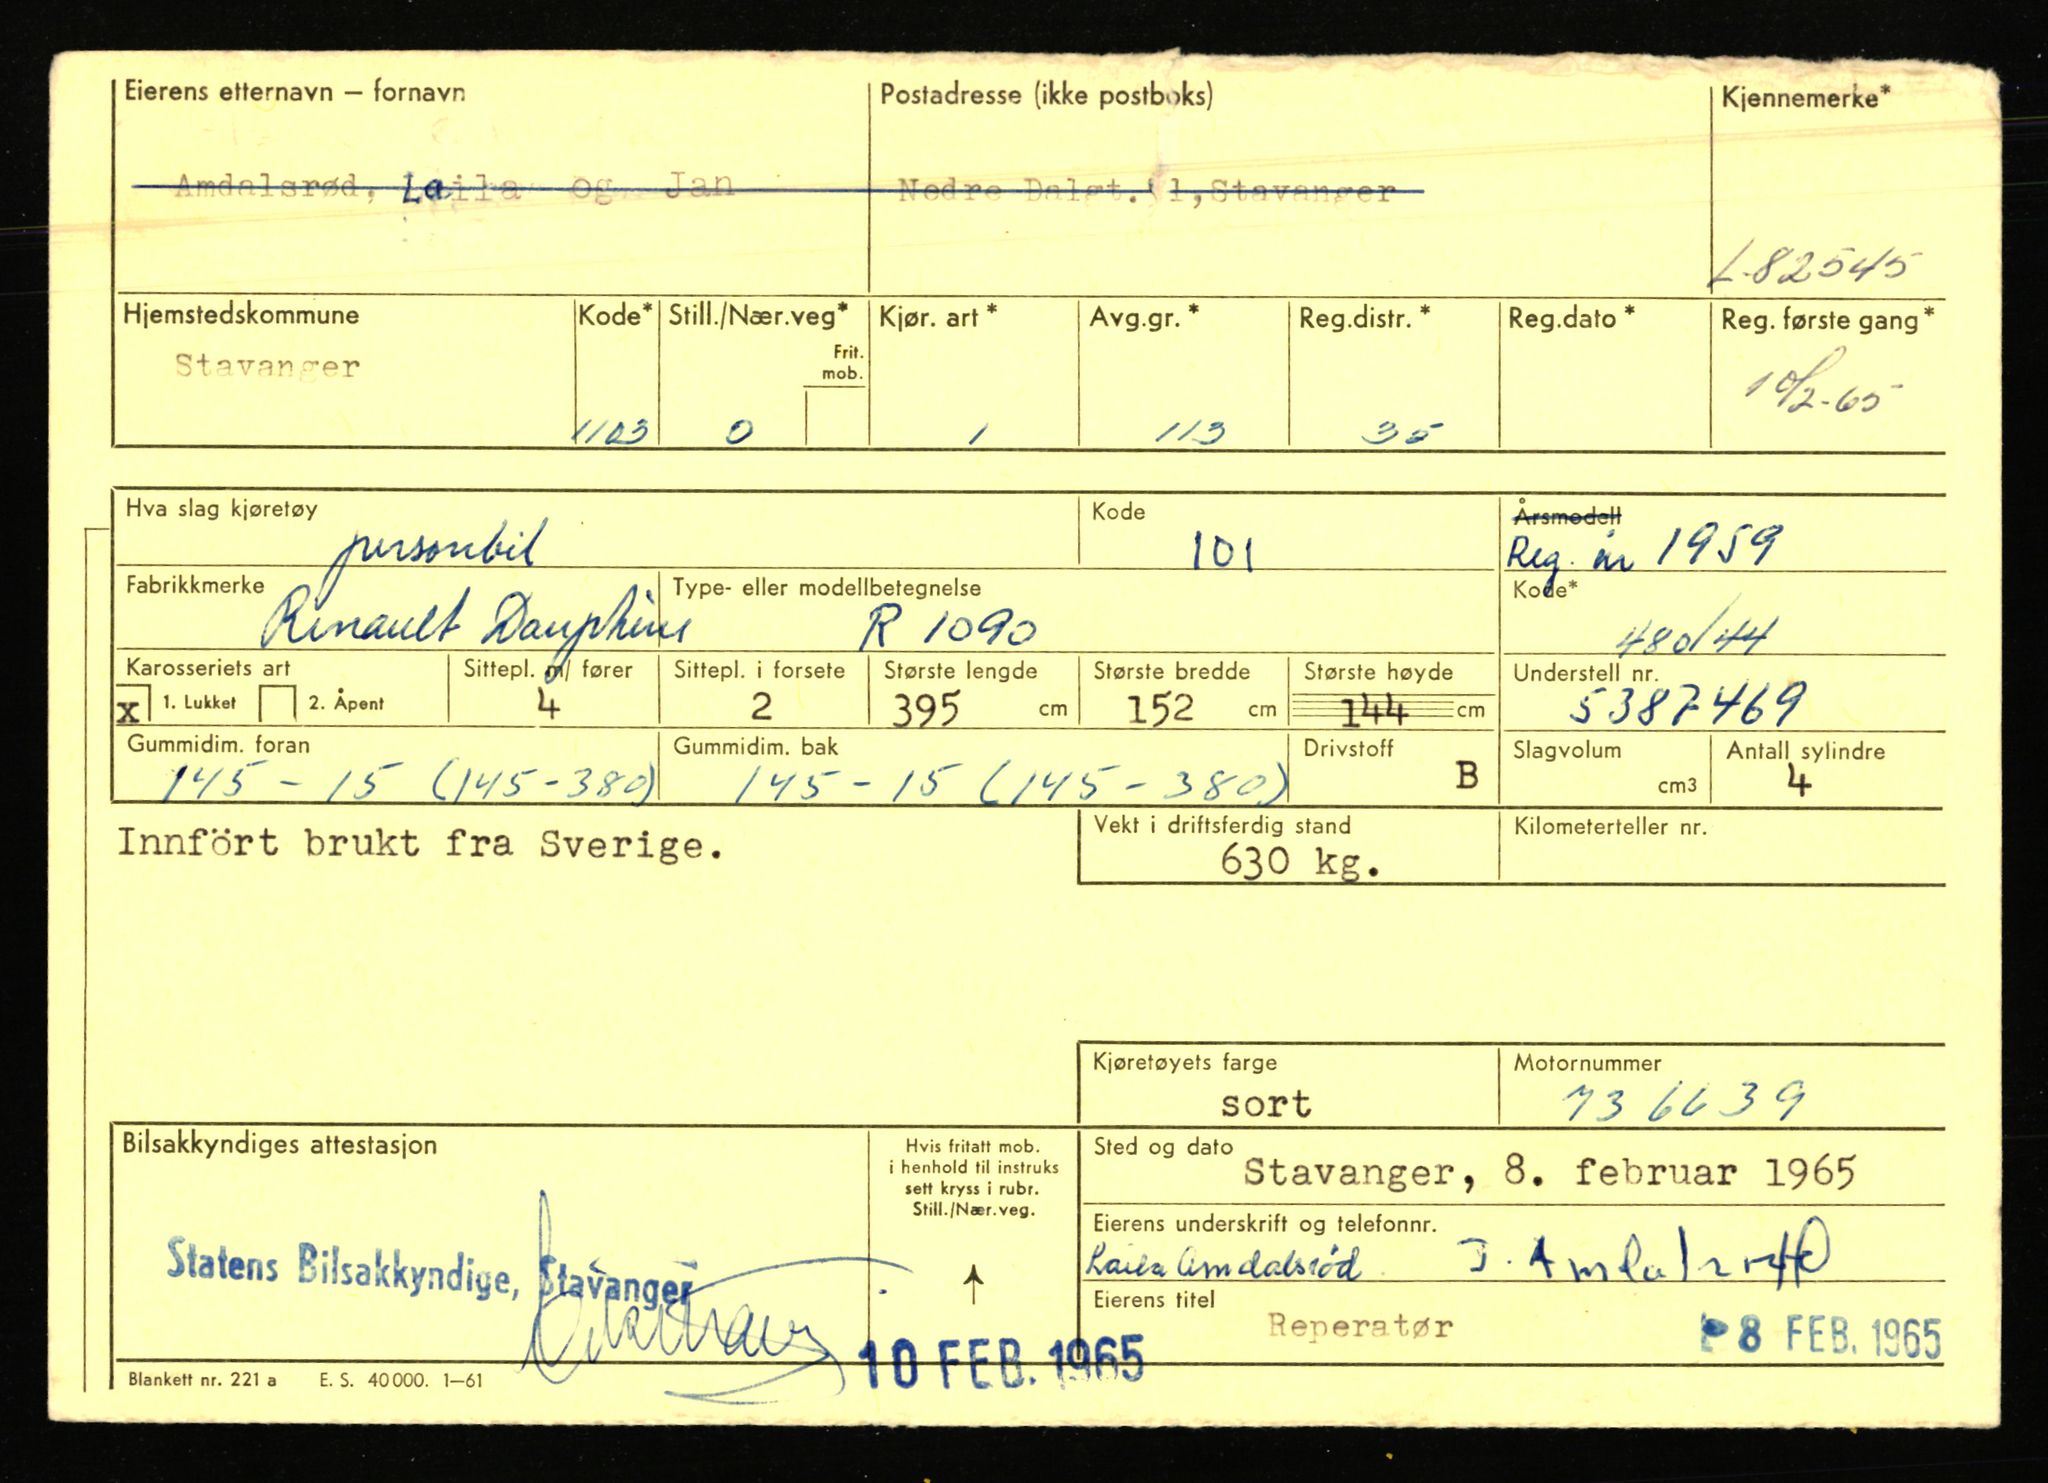 Eierens etternavn — fornavn Postadresse (ikke postboks) Kjennemerke*
Amdalsrød, Laila og Jan Nedre Dalgt. 1, Stavanger
L-82545
Hjemstedskommune Kode* Still./Nær.veg* Kjør. art * Avg.gr. * Reg.distr. * Reg.dato * Reg. første gang *
Frit.
mob.
Stavanger
10/2-65
1103 0 1 113 35
Hva slag kjøretøy Kode Årsmodell
personbil 101 Reg. år 1959
Fabrikkmerke Type- eller modellbetegnelse Kode*
Renault Dauphine R 1090 480/44
Karosseriets art Sittepl. m/ fører Sittepl. i forsete Største lengde Største bredde Største høyde Understell nr.
x 1. Lukket 2. Åpent 4 2 395 cm 152 cm 144 cm 5387469
Gummidim. foran Gummidim. bak Drivstoff Slagvolum Antall sylindre
145 - 15 (145-380) 145 - 15 (145-380) B cm3 4
Innfört brukt fra Sverige.
Vekt i driftsferdig stand Kilometerteller nr.
630 kg.
Kjøretøyets farge Motornummer
sort 736639
Bilsakkyndiges attestasjon
Hvis fritatt mob.
i henhold til instruks
sett kryss i rubr.
Still./Nær.veg.
Sted og dato
Stavanger, 8. februar 1965
Eierens underskrift og telefonnr.
Laila Amdalsrød J. Amdalsrød
Statens Bilsakkyndige, Stavanger
Eierens titel
Reperatør
8 FEB. 1965
10 FEB. 1965
Blankett nr. 221 a E. S. 40 000. 1—61